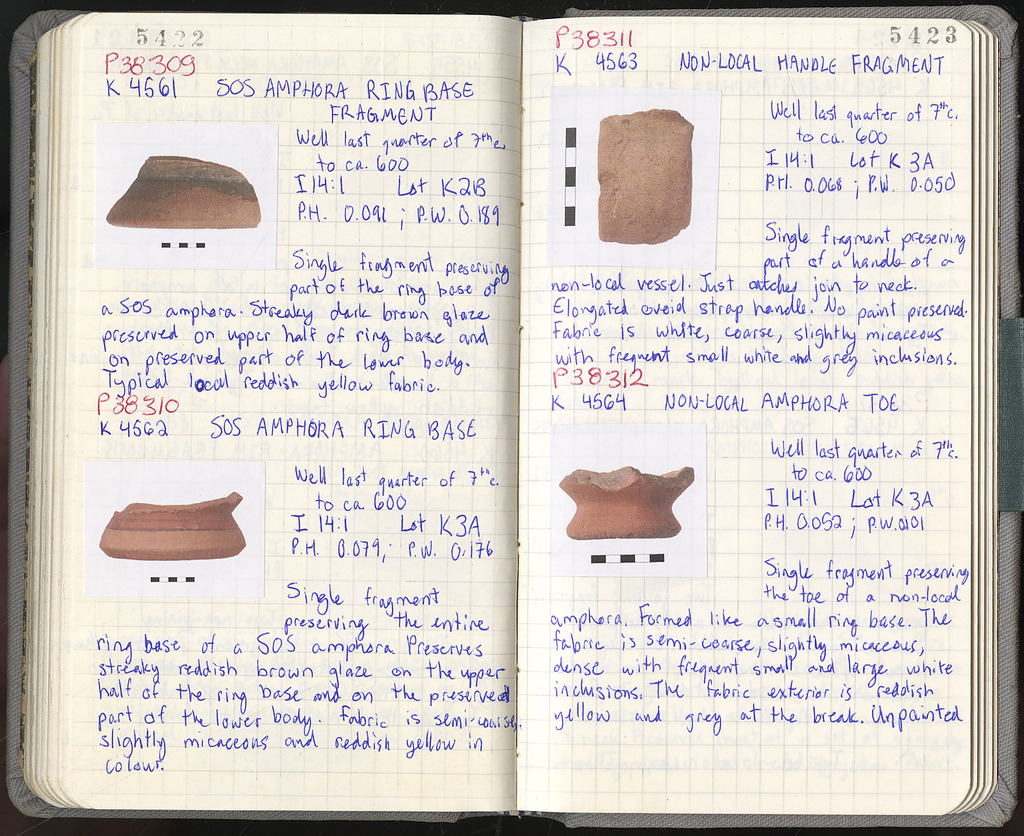 5422
P38309
K 4561 SOS AMPHORA RING BASE
FRAGMENT
Well last quarter of 7th c.
to ca. 600
I 14:1 Lot K2B
P.H. 0.091 ; P.W. 0.189
Single fragment preserving
part of the ring base of
a SOS amphora. Streaky dark brown glaze
preserved on upper half of ring base and
on preserved part of the lower body.
Typical local reddish yellow fabric.
P38310
K 4562 SOS AMPHORA RING BASE
Well last quarter of 7th c.
to ca 600
I 14:1 Lot K3A
P.H. 0.079; P.W. 0.176
Single fragment
preserving the entire
ring base of a SOS amphora Preserves
streaky reddish brown glaze on the upper
half of the ring base and on the preserved
part of the lower body. Fabric is semi-coarse,
slightly micaceous and reddish yellow in
colour.
5423
P38311
K 4563 NON-LOCAL HANDLE FRAGMENT
Well last quarter of 7th c.
to ca. 600
I 14:1 Lot K 3A
P.H. 0.068 ; P.W. 0.050
Single fragment preserving
part of a handle of a
non-local vessel. Just catches join to neck.
Elongated ovoid strap handle. No paint preserved.
Fabric is white, coarse, slightly micaceous
with frequent small white and grey inclusions.
P38312
K 4564 NON-LOCAL AMPHORA TOE
Well last quarter of 7th c.
to ca. 600
I 14:1 Lot K3A
P.H. 0.052 ; P.W. 0.101
Single fragment preserving
the toe of a non-local
amphora. Formed like a small ring base. The
fabric is semi-coarse, slightly micaceous,
dense with frequent small and large white
inclusions. The fabric exterior is reddish
yellow and grey at the break. Unpainted